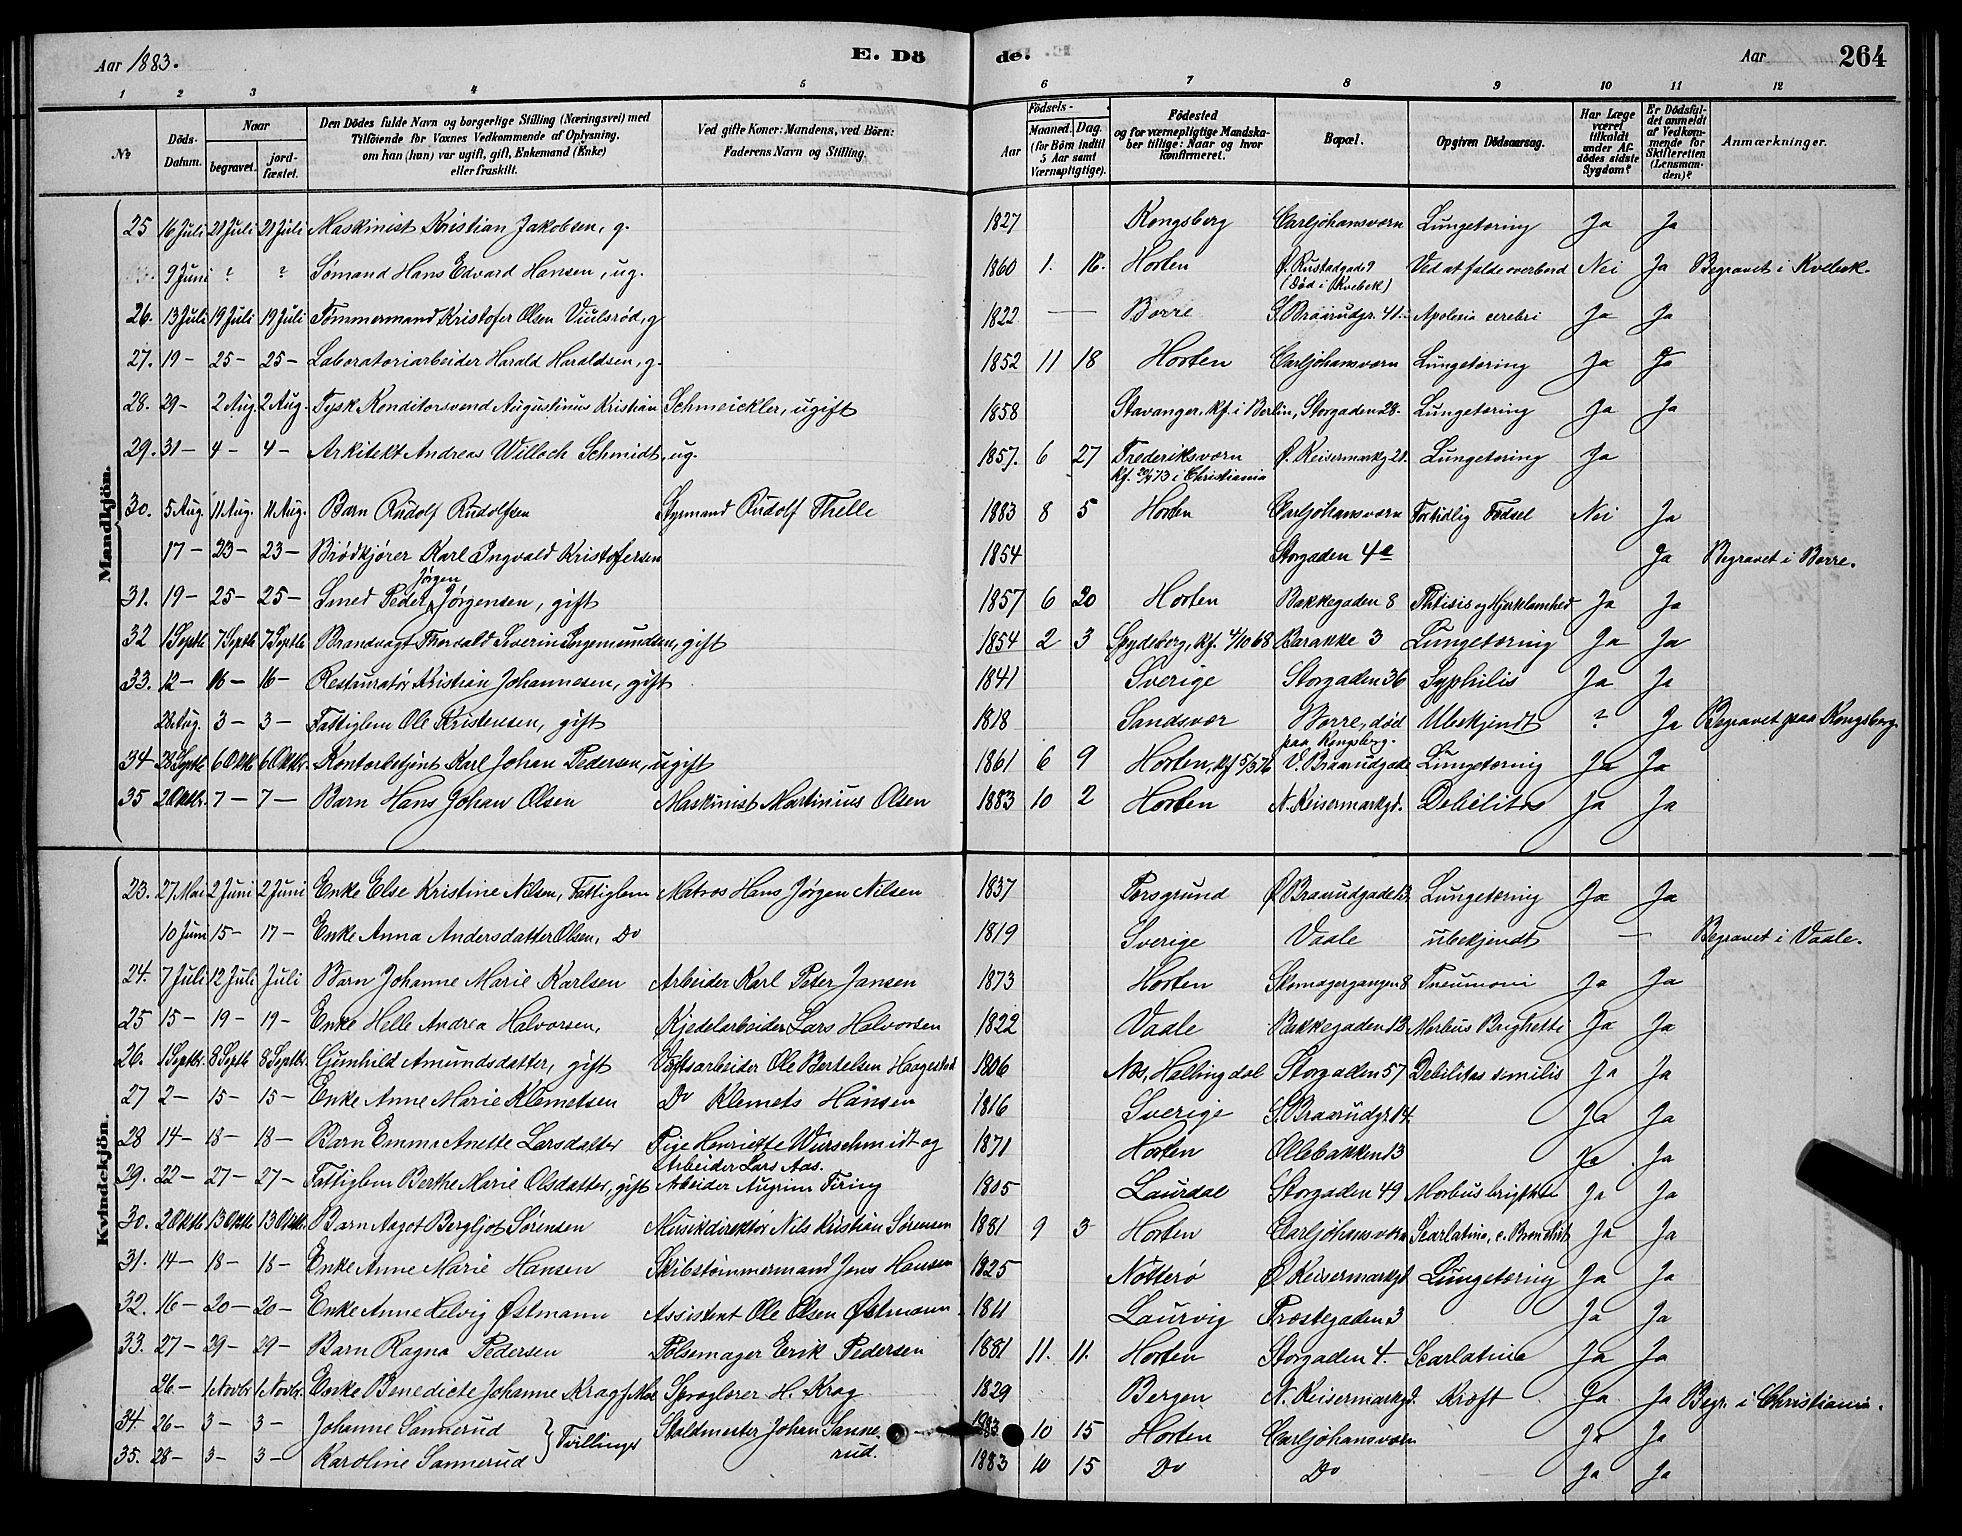 Aar 1883. E. Dö de. Aar 264
1 2 3 4 5 6 7 8 9 10 11 12
No Döds-Datum. Naar begravet. jordfæstet. Den Dödes fulde Navn og borgerlige Stilling (Næringsvei) med Tilföiende for Voxnes Vedkommende af Oplysning, om han (hun) var ugift, gift, Enkemand (Enke) eller fraskilt. Ved gifte Koner: Mandens, ved Börn: Faderens Navn og Stilling. Aar Födsels- Maaned. Dag. (for Börn indtil 5 Aar samt Værnepligtige). Födested og for værnepligtige Mandskaber tillige: Naar og hvor konfirmeret. Bopæl. Opgiven Dödsaarsag. Har Læge været tilkaldt under Afdödes sidste Sygdom? Er Dödsfaldet anmeldt af Vedkommende for Skifteretten (Lensmanden)? Anmærkninger.
Mandkjön.
25 16 Juli 21 Juli 21 Juli Maskinist Kristian Jakobsen, g. 1827 Kongsberg Carljohansværn Lungetæring Ja Ja
9 Juni ? ? Sømand Hans Edvard Hansen, ug. 1860 1. 16. Horten Ø. Rustadgade 9 Ved at falde overbord Nei Ja Begravet i Kvibek.
(død i Kvebek)
26. 13 Juli 19 Juli 19 Juli Tømmermand Kristofer Olsen Viulsrød, g 1822 — — Borre S. Braarudgr. 41 Apolexia cerebri Ja Ja
27. 19 - 25 - 25 - Laboratoriarbeider Harald Haraldsen, g. 1852 11 18 Horten Carljohansværn Lungetæring Ja Ja
28. 29 - 2 Aug. 2 Aug. Tysk Konditorsvend Augustinus Kristian Schmeickler, ugift 1858 Stavanger, kf. i Berlin, Storgaden 28. Lungetæring Ja Ja
29. 31 - 4 - 4 - Arkitekt Andreas Willoch Schmidt, ug. 1857. 6 27 Frederiksværn Ø. Keisermarkg 21. Lungetæring Ja
kf. 20/4 73 i Christiania
30. 5 Aug. 11 Aug. 11 Aug. Barn Rudolf Rudolfsen Styrmand Rudolf Thelle 1883 8 5 Horten Carljohansværn Fortidlig Fødsel Nei Ja
17 - 23 - 23 - Brødkjører Karl Ingvald Kristofersen 1854 Storgaden 4a Ja Begravet i Borre.
Jørgen
31. 19 - 25 - 25 - Smed Peder Jørgensen, gift 1857 6 20 Horten Bakkegaden 8 Phtisis og Hjerklamhed Ja Ja
32 1 Septb 7 Septb 7 Septb Brandvagt Thorvald Severin Ingemundsen, gift 1854 2 3 Spydeberg, kf. 4/10 68 Barakke 3 Lungetæring Ja Ja
33. 12 - 16 - 16 - Restauratør Kristian Johannesen, gift 1841 Sverige Storgaden 36 Syphilis Ja Ja
28 Aug. 3 - 3 - Fattiglem Ole Kristensen, gift 1818 Sandsvær Borre, død Ubekjendt ? Ja Begravet paa Kongsberg.
paa Kongsberg.
34 28 Septb 6 Oktb 6 Oktbr. Kontorbetjent Karl Johan Pedersen, ugift 1861 6 9 Horten, kf 5/5 76 V. Braarudgade Lungetæring Ja Ja
35 2 Oktbr. 7 - 7 - Barn Hans Johan Olsen Maskinist Martinius Olsen 1883 10 2 Horten N. Keisermarkgd. Debilitas Ja Ja
Kvindekjön.
23. 27 Mai 2 Juni 2 Juni Enke Else Kristine Nilsen, Fattiglem Matros Hans Jørgen Nilsen 1837 Porsgrund Ø Braarudgade 13. Lungetæring Ja Ja
10 Juni 15 - 17 - Enke Anna Andersdatter Olsen, Do 1819 Sverige Vaale ubekjendt — Begravet i Vaale.
24. 7 Juli 12 Juli Juli Barn Johanne Marie Karlsen Arbeider Karl Peter Jansen 1873 Horten Skomagergangen 8 Pneumoni Ja Ja
25 15 - 19 - 19 - Enke Helle Andrea Halvorsen, Kjedelarbeider Lars Halvorsen 1822 Vaale Bakkegaden 13 Morbus Brighetti Ja Ja
26. 1 Septbr. 8 Septb 8 Septbr. Gunhild Amundsdatter, gift Værftsarbeider Ole Bertelsen Haagestad 1806 Næs, Hallingdal Storgaden 57 Debilitas senilis Ja Ja
27 2 - 15 - 15 - Enke Anne Marie Klemetsen Do Klemets Hansen 1816 Sverige S. Braarudgr. 14. Ja Ja
28 14 - 18 - 18 - Barn Emma Anette Larsdatter Pige Henriette Wurschmidt og 1871 Horten Ollebakken 13 Ja Ja
Arbeider Lars Aas.
29. 22 - 27 - 27 - Fattiglem Berthe Marie Olsdatter, gift Arbeider Augrim Firing 1805 Laurdal Storgaden 49 Morbus brightti Ja Ja
30. 2 Oktb 13 Oktb 13 Oktb. Barn Aagot Bergljot Sørensen Musikdirektør Nils Kristian Sørensen 1881 9 3 Horten Carljohansværn Scarlatina, c. Bronchit Ja Ja
31. 14 - 18 - 18 - Enke Anne Marie Hansen Skibstømmermand Jens Hansen 1825 Nøtterø Ø Keisermarkgd. Lungetæring Ja Ja
32. 16 - 20 - 20 - Enke Anne Helvig Østmann Assistent Ole Olsen Østmann 1811 Laurvig Præstegaden 3 Ja Ja
33. 27 - 29 - 29 - Barn Ragna Pedersen Pølsemager Erik Pedersen 1881 11. 11. Horten Storgaden 4. Scarlatina Ja Ja
26 - 1 Novbr 1 Novbr. Enke Benedicte Johanne Krag f. Sproglærer H. Krag 1829 Bergen N. Keisermarkgd. Kræft Ja Ja Begr. i Christiania.
34. 26 - 3 - 3 - Johanne Sannerud } Tvillinger Staldmester Johan Sanne- 1883 10 15 Horten Carljohansværn Ja Ja
35. 28 - 3 - 3 - Karoline Sannerud rud. 1883 10 15 Do Do Ja Ja